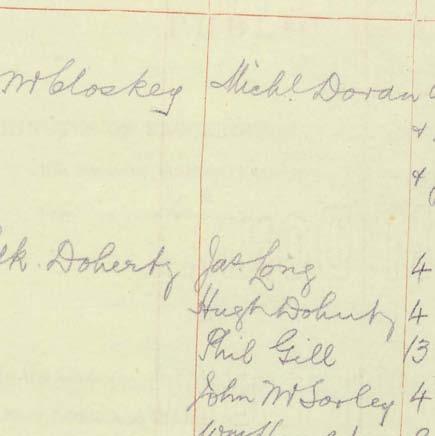 McCloskey Michl. Doran
&
&
Doherty Jas. Long 4
Hugh Doherty 4
Phil Gill 13
John McSorley 4